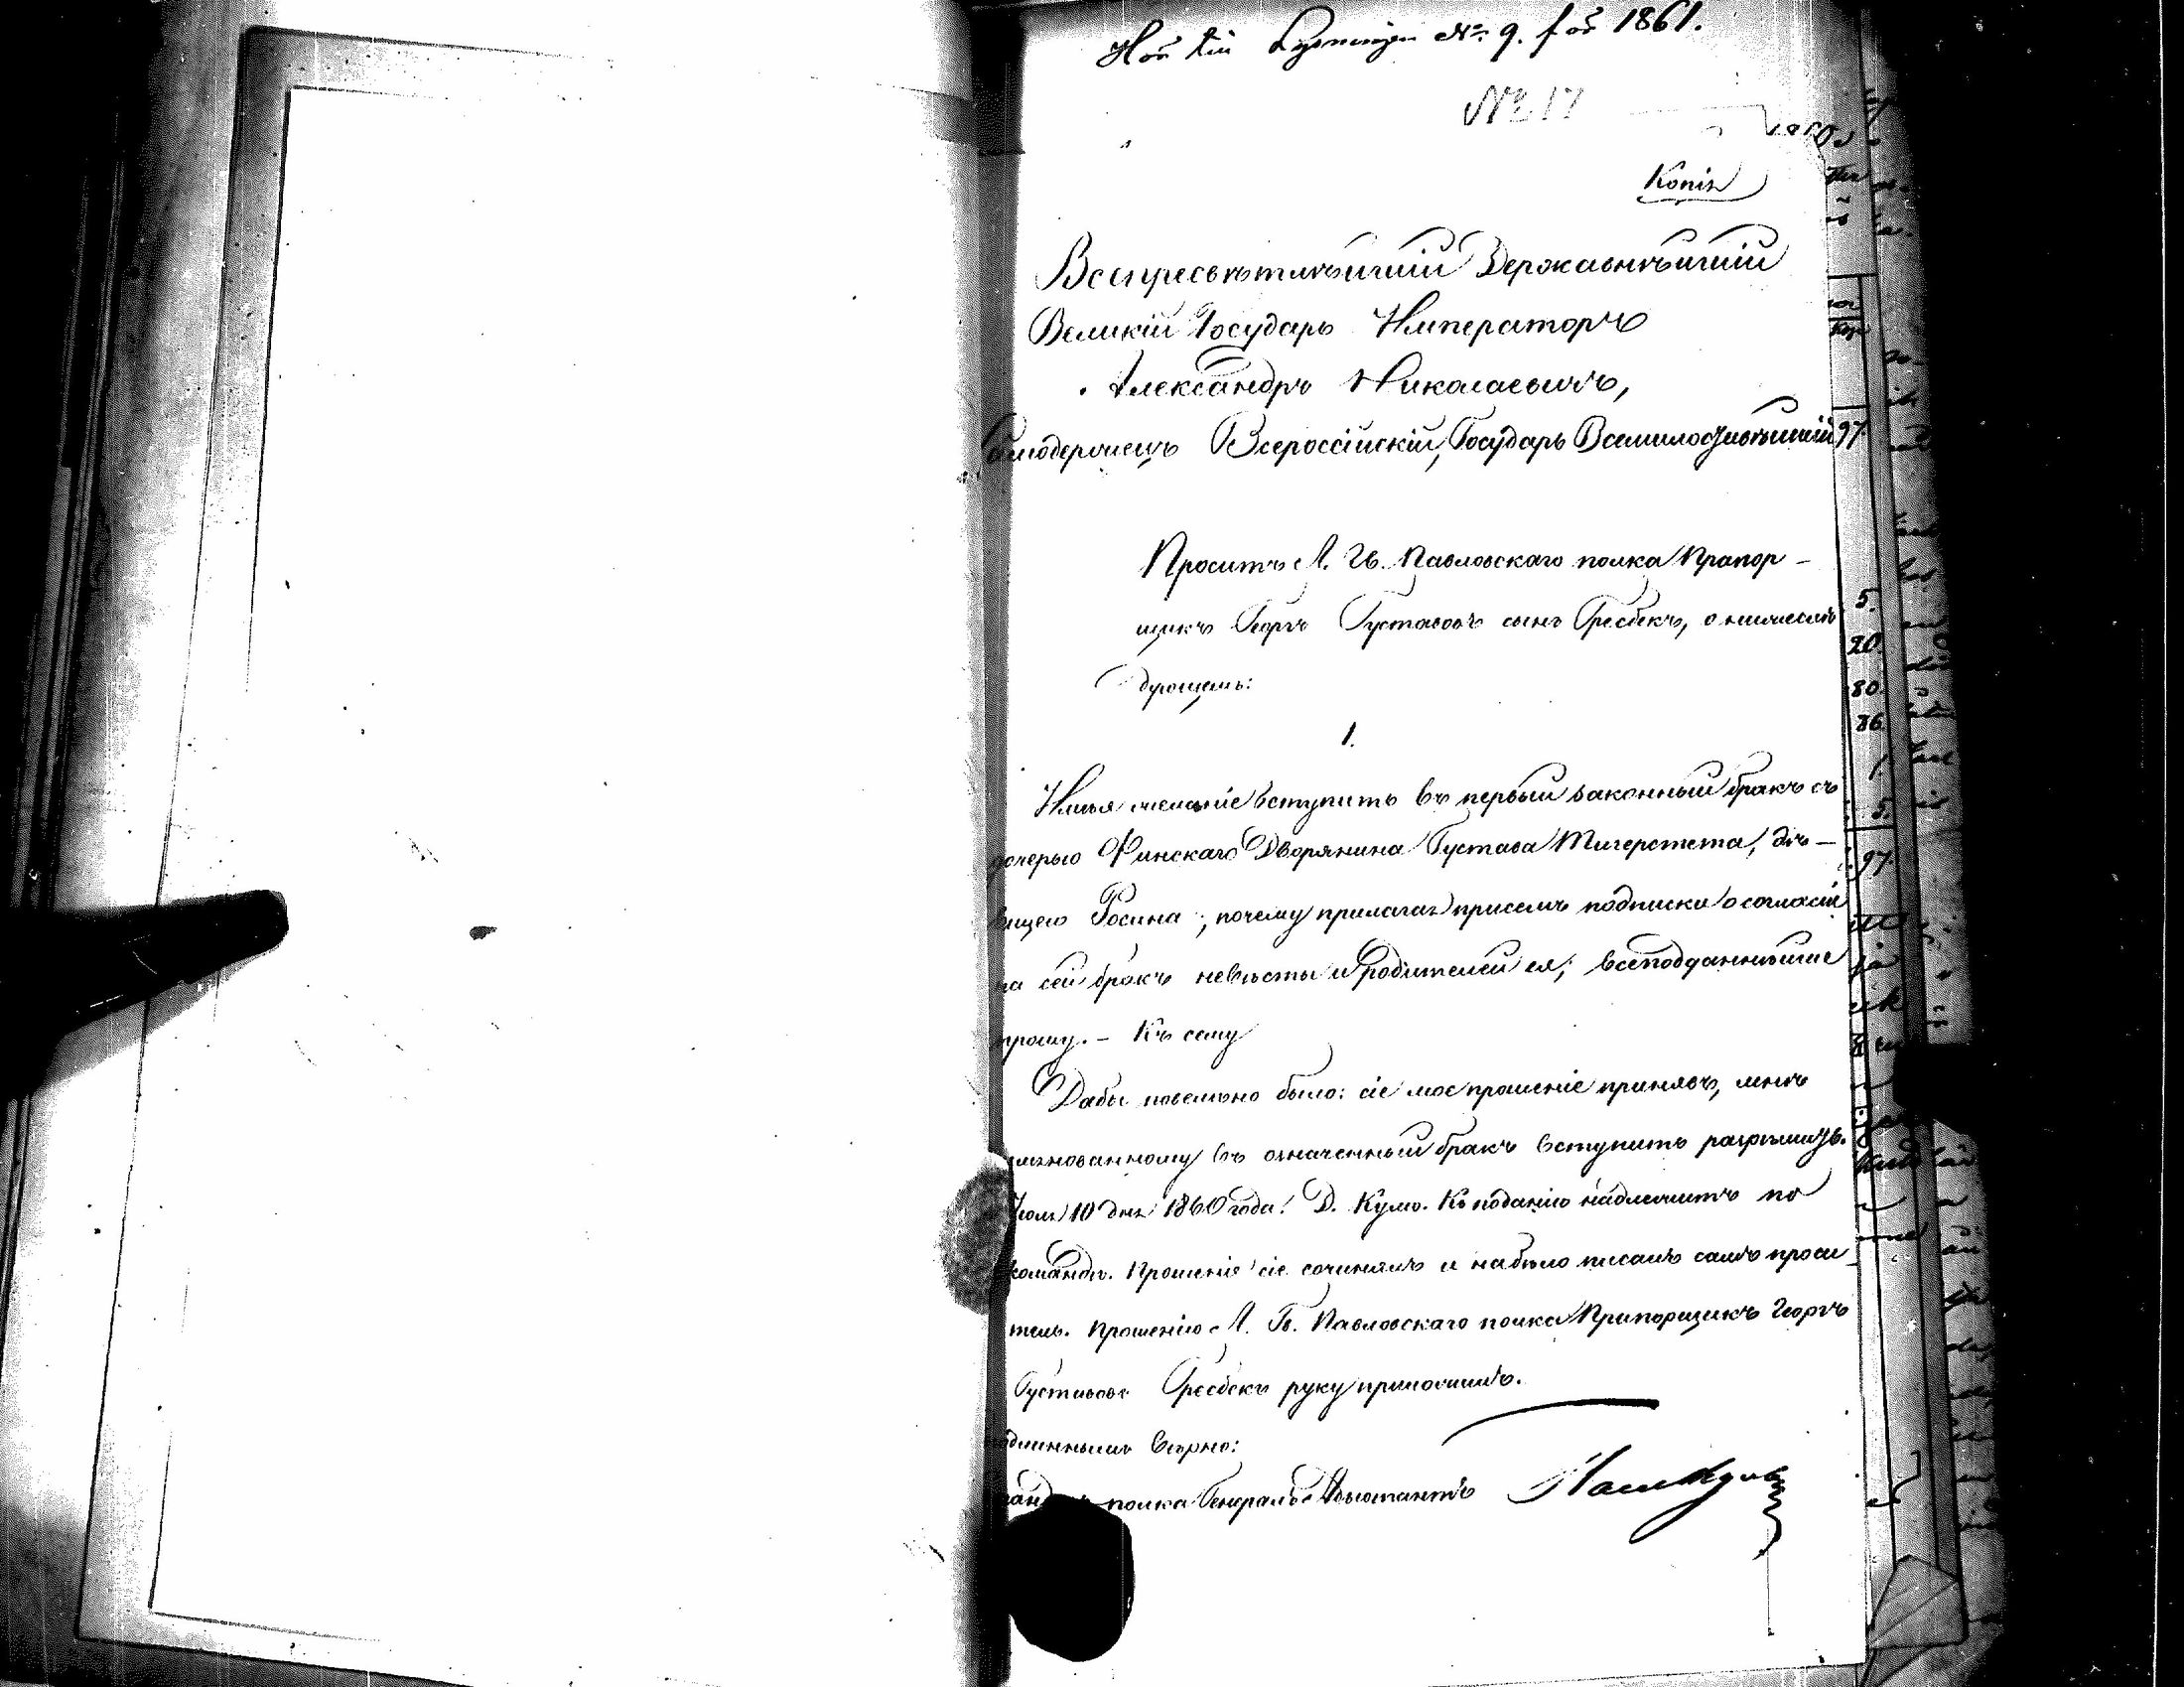 Hör till Lysningen № 9. för 1861.
№ 17
Копія
Всепресвѣтлѣйшій Державнѣйшій
Великій Государь Императоръ
Александръ Николаевичъ,
Самодержецъ Всероссійскій, Государь Всемилостивѣйшій
Проситъ Л. Гв. Павловскаго полка Прапор-
щикъ Георгъ Густавовъ сынъ Гресбекъ, о нижеслѣ
дующемъ:
1.
Имѣя желаніе вступить въ первый законный бракъ съ
дочерью Финскаго Дворянина Густава Тигерстета, дѣ-
вицею Росина, почему прилагая присемъ подписки о согласіи
на сей бракъ невѣсты и родителей ея; всеподданнѣйше
прошу. - Къ сему
Дабы повелѣно было: сіе мое прошеніе принявъ, мнѣ
имянованному въ означенный бракъ вступить разрѣшить.
Іюля 10 дня 1860 года. Д. Кумо. Къ поданію надлежитъ по
командѣ. Прошеніе сіе сочинялъ и набѣло писалъ самъ проси
тель. Прошенію Л. Гв. Павловскаго полка Прапорщикъ Георгъ
Густавовъ Гресбекъ руку приложилъ.
подлиннымъ вѣрно:
полка Генералъ-Адъютантъ